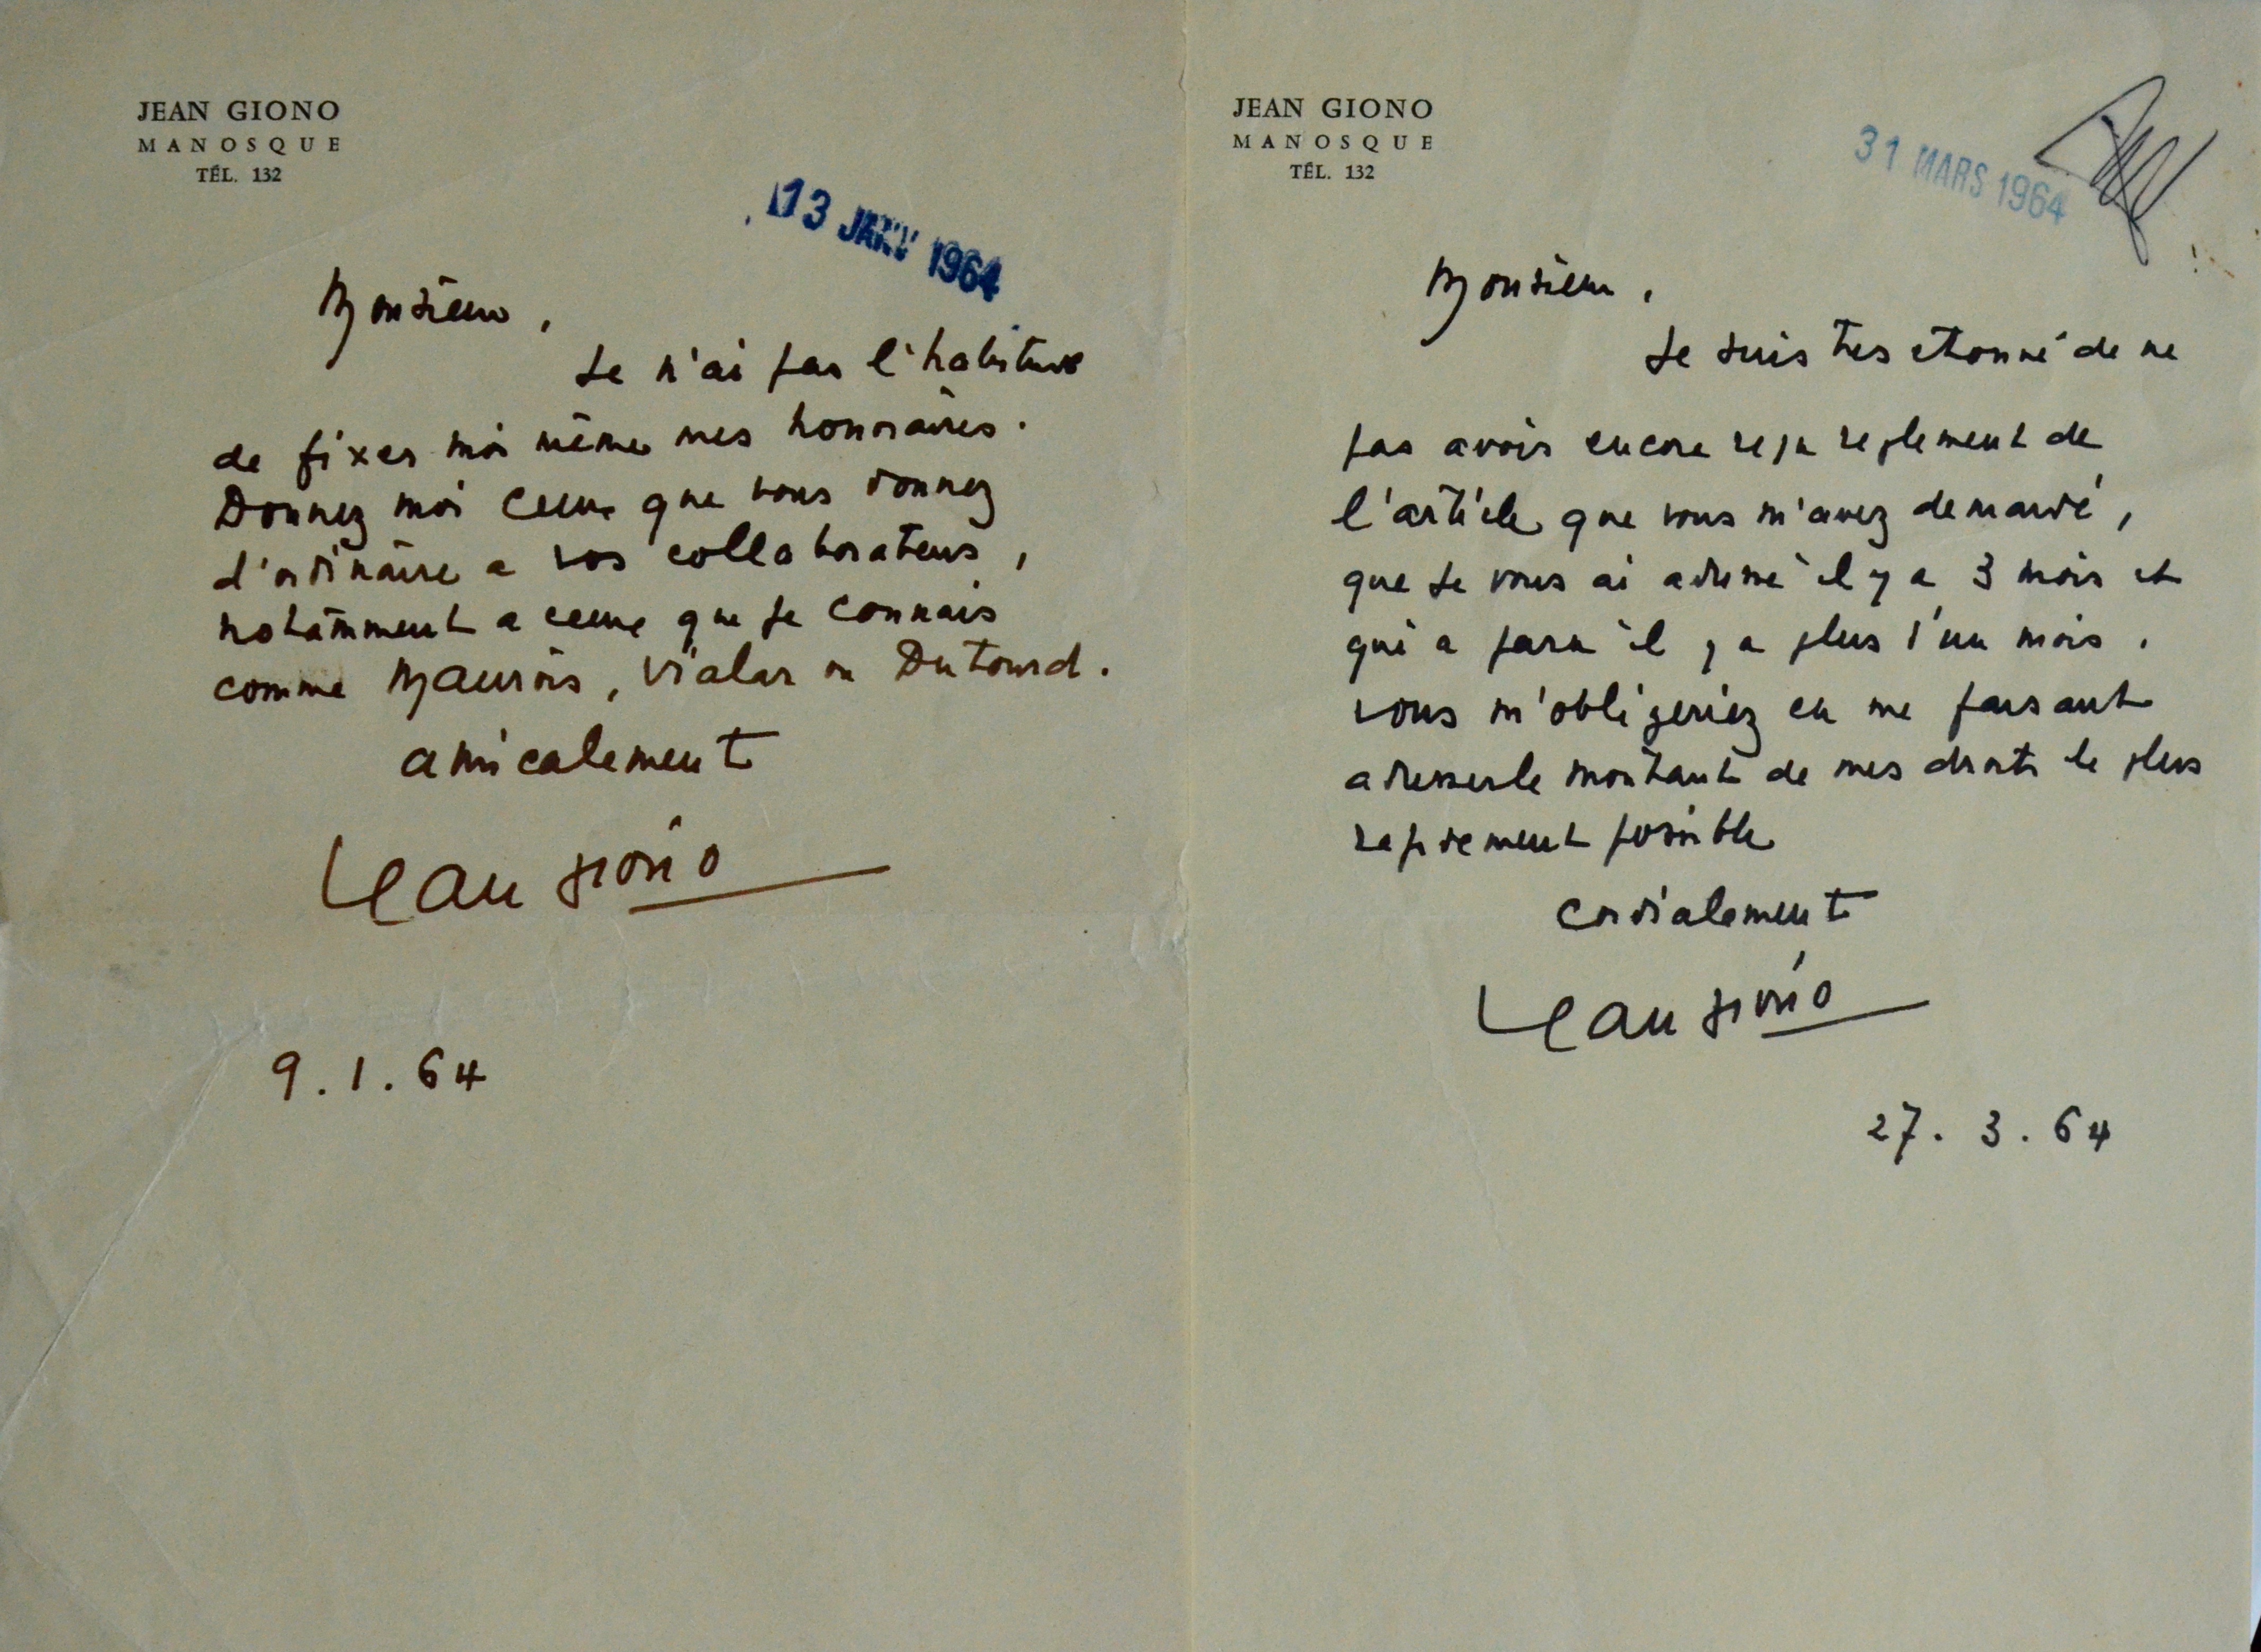 JEAN GIONO
MANOSQUE
TÉL. 132
13 JANV 1964
Monsieur,
Je n'ai pas l'habitude
de fixer moi même mes honoraires.
Donnez moi ceux que vous donnez
d'ordinaire a vos collaborateurs,
notamment a ceux que je connais
comme Maurois, Vialar ou Dutourd.
amicalement
Jean Giono
9.1.64
JEAN GIONO
MANOSQUE
TÉL. 132
31 MARS 1964
Monsieur,
Je suis tres etonné de ne
pas avoir encore reçu reglement de
l'article que vous m'avez demandé,
que je vous ai adressé il y a 3 mois et
qui a paru il y a plus d'un mois.
vous m'obligeriez en me faisant
adresser le montant de mes droits le plus
rapidement possible
cordialement
Jean Giono
27.3.64